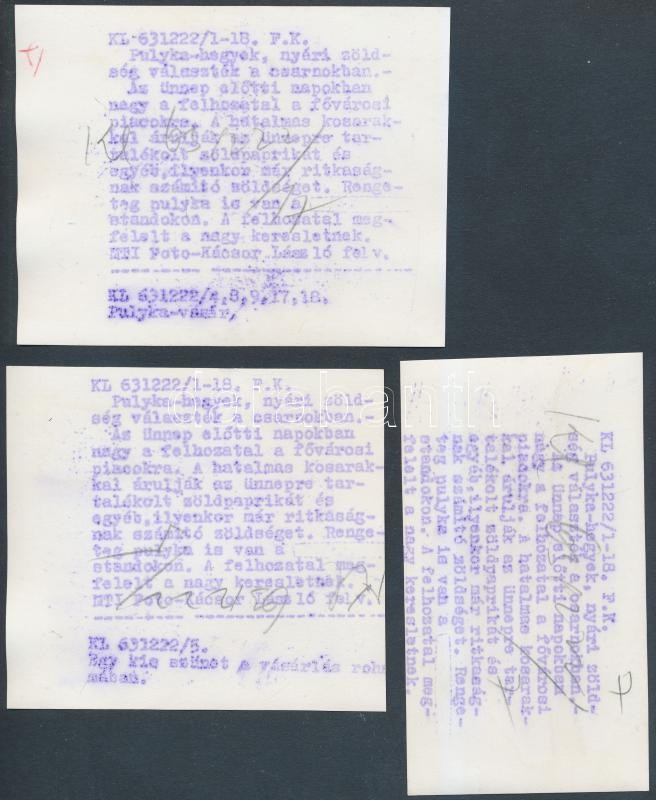 KL 631222/1-18. F.K.
Pulyka-hegyek, nyári zöld-
ség választék a csarnokban.-
Az Ünnep előtti napokban
nagy a felhozatal a fővárosi
piacokra. A hatalmas kosarak-
kal árulják az ünnepre tar-
talékolt zöldpaprikát és
egyéb,ilyenkor már ritkaság-
nak számító zöldséget. Renge-
teg pulyka is van a
standokon. A felhozatal meg-
felelt a nagy keresletnek.
MTI Foto-Kácsor László felv.
KL 631222/4,8,9,17,18.
Pulyka-vásár,
KL 631222/1-18. F.K.
Pulyka-hegyek, nyári zöld-
ség választék a csarnokban.-
Az Ünnep előtti napokban
nagy a felhozatal a fővárosi
piacokra. A hatalmas kosarak-
kal árulják az ünnepre tar-
talékolt zöldpaprikát és
egyéb,ilyenkor már ritkaság-
nak számító zöldséget. Renge-
teg pulyka is van a
standokon. A felhozatal meg-
felelt a nagy keresletnek.
MTI Foto-Kácsor László felv.
KL 631222/5.
Egy kis szünet a vásárlás roha
mában.
KL 631222/1-18. F.K.
Pulyka-hegyek, nyári zöld-
ség választék a csarnokban.-
Az Ünnep előtti napokban
nagy a felhozatal a fővárosi
piacokra. A hatalmas kosarak-
kal árulják az ünnepre tar-
talékolt zöldpaprikát és
egyéb,ilyenkor már ritkaság-
nak számító zöldséget. Renge-
teg pulyka is van a
standokon. A felhozatal meg-
felelt a nagy keresletnek.
darabanth